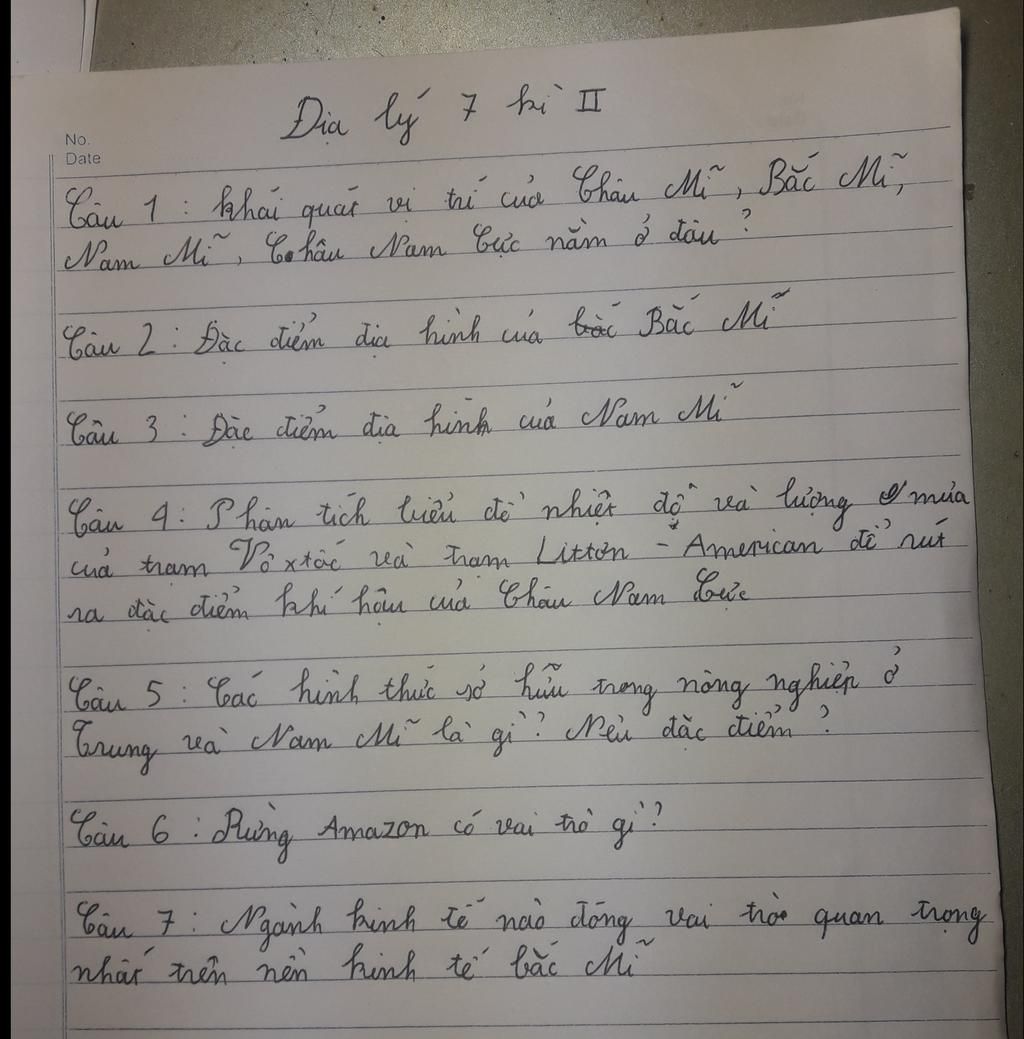 Địa lý 7 kì II
No.
Date
Câu 1 : Khái quát vị trí của Châu Mĩ, Bắc Mĩ,
Nam Mĩ, Châu Nam Cực nằm ở đâu ?
Câu 2 : Đặc điểm địa hình của bắc Bắc Mĩ
Câu 3 : Đặc điểm địa hình của Nam Mĩ
Câu 4 : Phân tích biểu đồ nhiệt độ và lượng mưa
của trạm Vôxtốc và trạm Litton - American để rút
ra đặc điểm khí hậu của Châu Nam Cực
Câu 5 : Các hình thức sở hữu trong nông nghiệp ở
Trung và Nam Mĩ là gì ? Nêu đặc điểm ?
Câu 6 : Rừng Amazon có vai trò gì ?
Câu 7 : Ngành kinh tế nào đóng vai trò quan trọng
nhất trên nền kinh tế bắc Mĩ